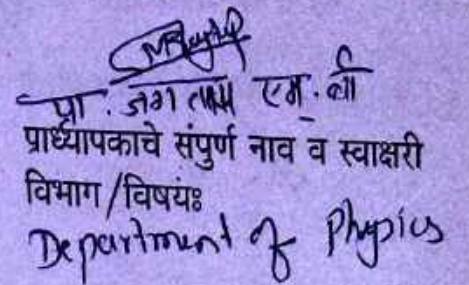 प्रा. जगताप एम. बी
प्राध्यापकाचे संपुर्ण नाव व स्वाक्षरी
विभाग/विषयः
Department of Physics